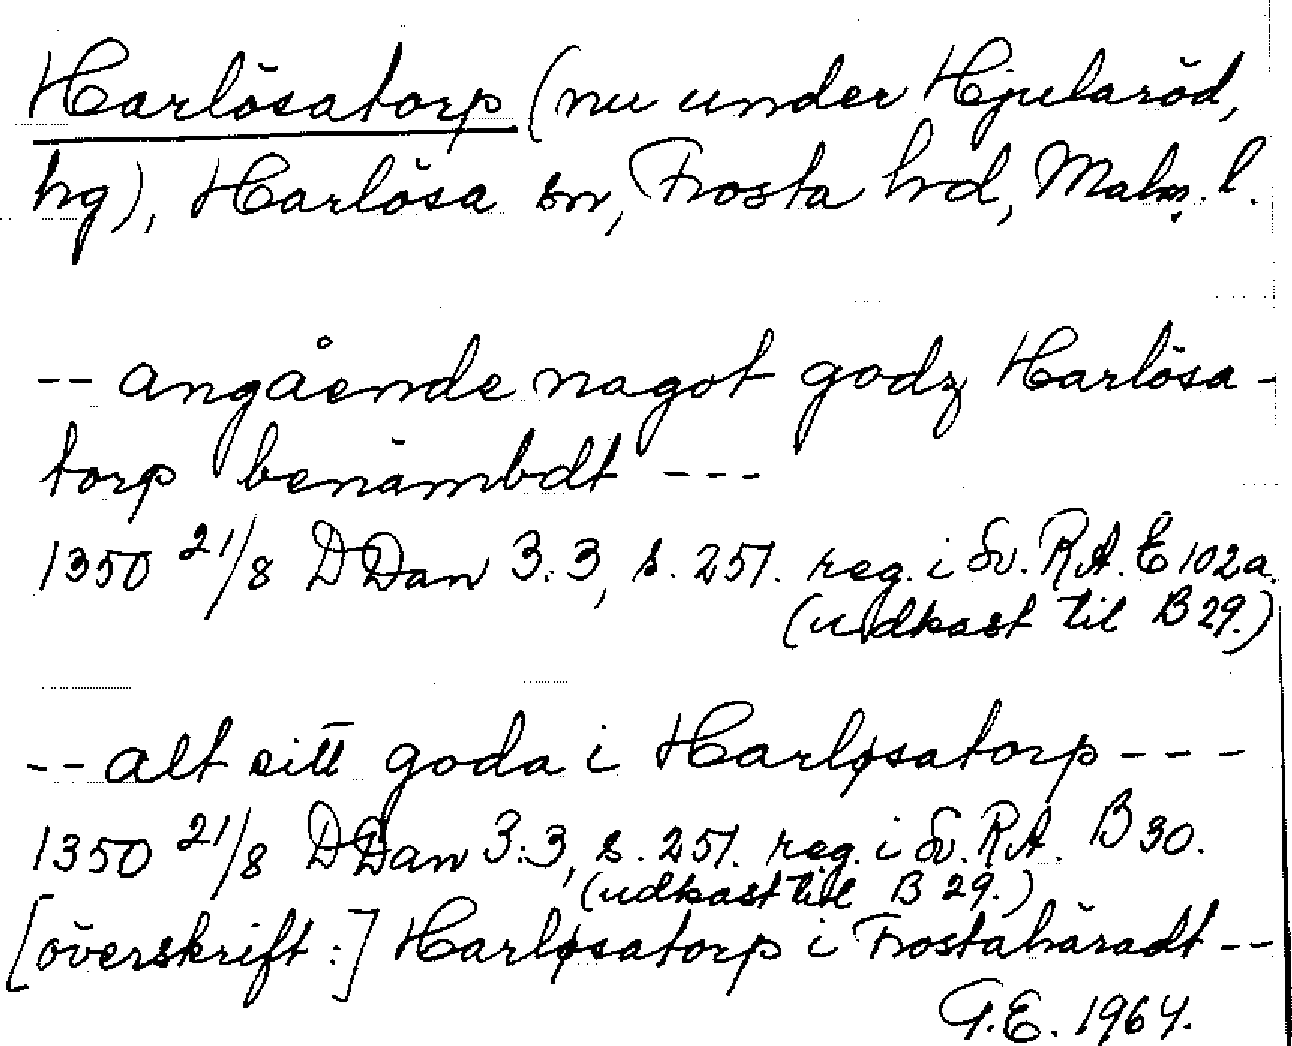 Harlösatorp (nu under Hjularöd,
hg), Harlösa sn, Frosta hd, Malm. l.
-- angående nagot godz Harlösa-
torp benämbdt ---
1350 21/8 DDan 3.3, s. 251. reg. i Sv. RA. E 102a.
(udkast til B 29.)
-- alt sitt goda i Harløsatorp ---
1350 21/8 DDan 3.3, s. 251. reg. i Sv. RA. B 30.
(udkast til B 29.)
[överskrift:] Harløsatorp i Frostahäradt --
G.E. 1964.